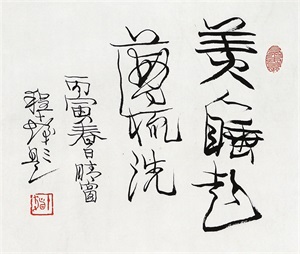 美人睡起
薄梳洗
丙寅春日晴窗
程十髮